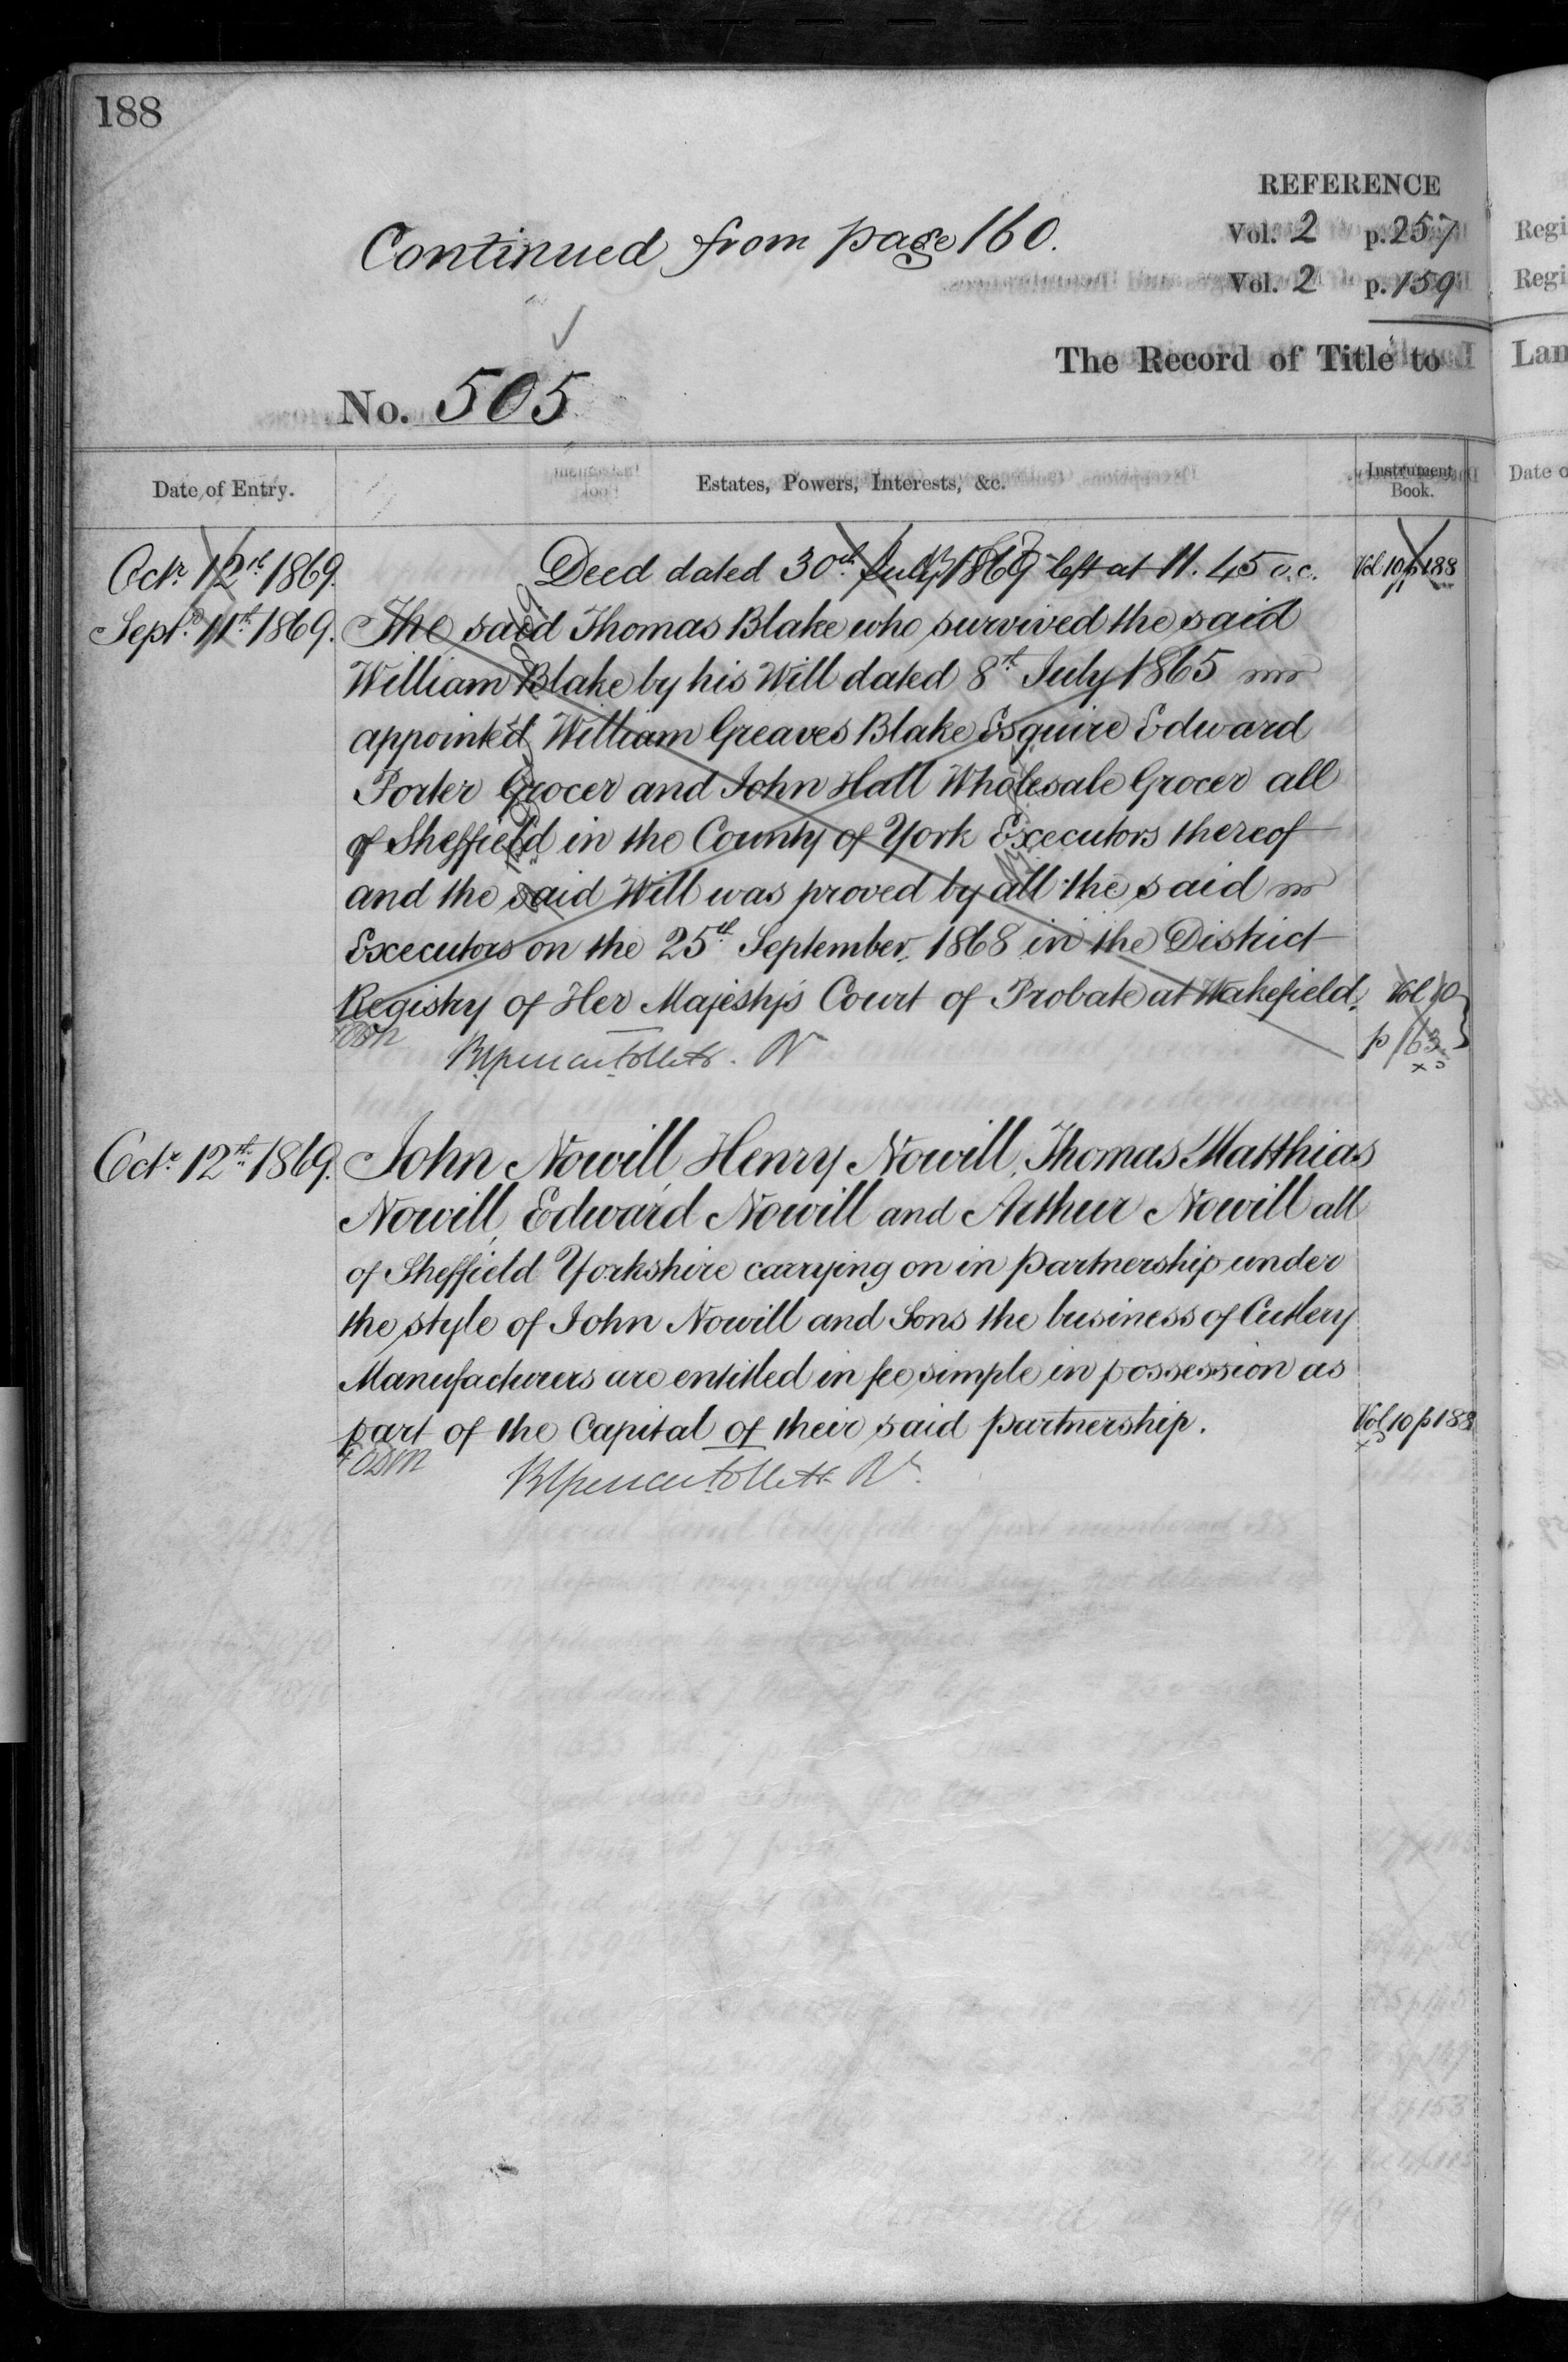 188
REFERENCE
Continued from page 160.
Vol. 2 p. 257
Vol. 2 p. 159
The Record of Title to
No. 505
Date of Entry.
Estates, Powers, Interests, &c.
Instrument Book.
Octr. 12th 1869. Deed dated 30th July 1869 left at 11.45 o.c. Vol 10 p 188
Septr. 11th 1869. The said Thomas Blake who survived the said
William Blake by his Will dated 8th July 1865
appointed William Greaves Blake Esquire Edward
Porter Grocer and John Hall Wholesale Grocer all
of Sheffield in the County of York Executors thereof
and the said Will was proved by all the said
Executors on the 25th September, 1868 in the District
Registry of Her Majesty's Court of Probate at Wakefield. Vol 10
p 163
Octr. 12th 1869. John Nowill, Henry Nowill, Thomas Matthias
Nowill, Edward Nowill and Arthur Nowill all
of Sheffield Yorkshire carrying on in partnership under
the style of John Nowill and Sons the business of Cutlery
Manufacturers are entitled in fee simple in possession as
part of the Capital of their said partnership. Vol 10 p 188
Regi
Regi
Lan
Date o